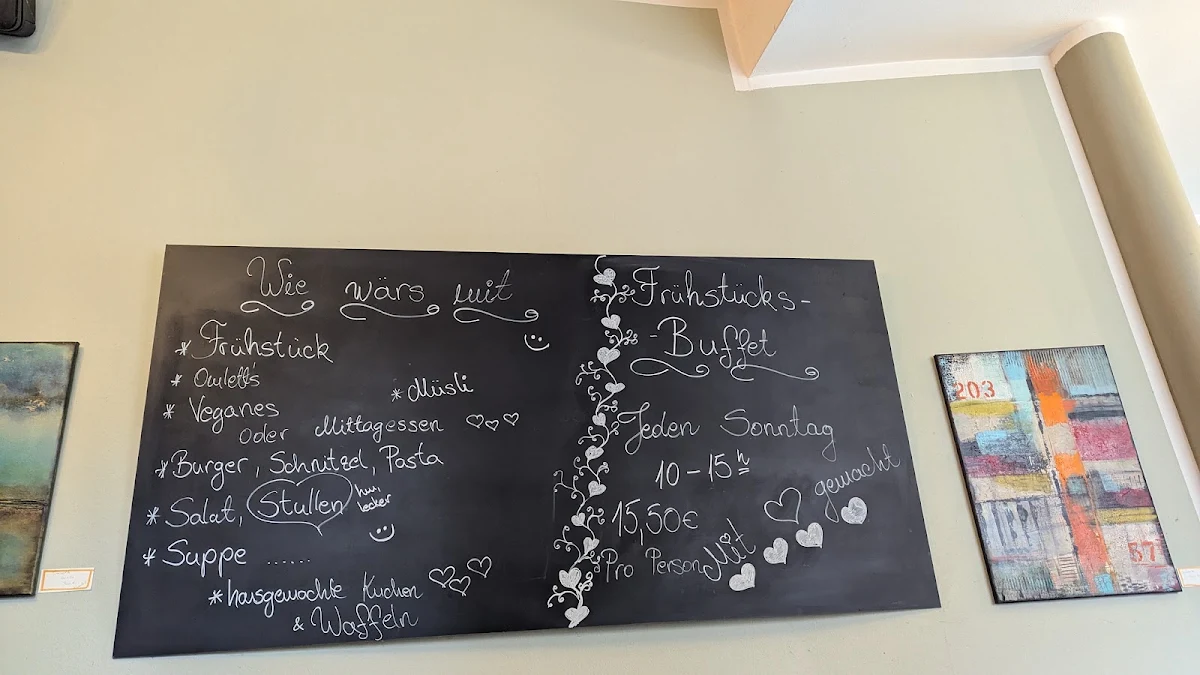 Wie wärs mit
* Frühstück
* Omlett's
* Müsli
* Veganes
oder Mittagessen
* Burger, Schnitzel, Pasta
* Salat, Stullen hm, lecker
* Suppe ......
* hausgemachte Kuchen
& Waffeln
Frühstücks-
-Buffet
Jeden Sonntag
10-15 h
15,50€
Pro Person
Mit ♡ gemacht
203
37